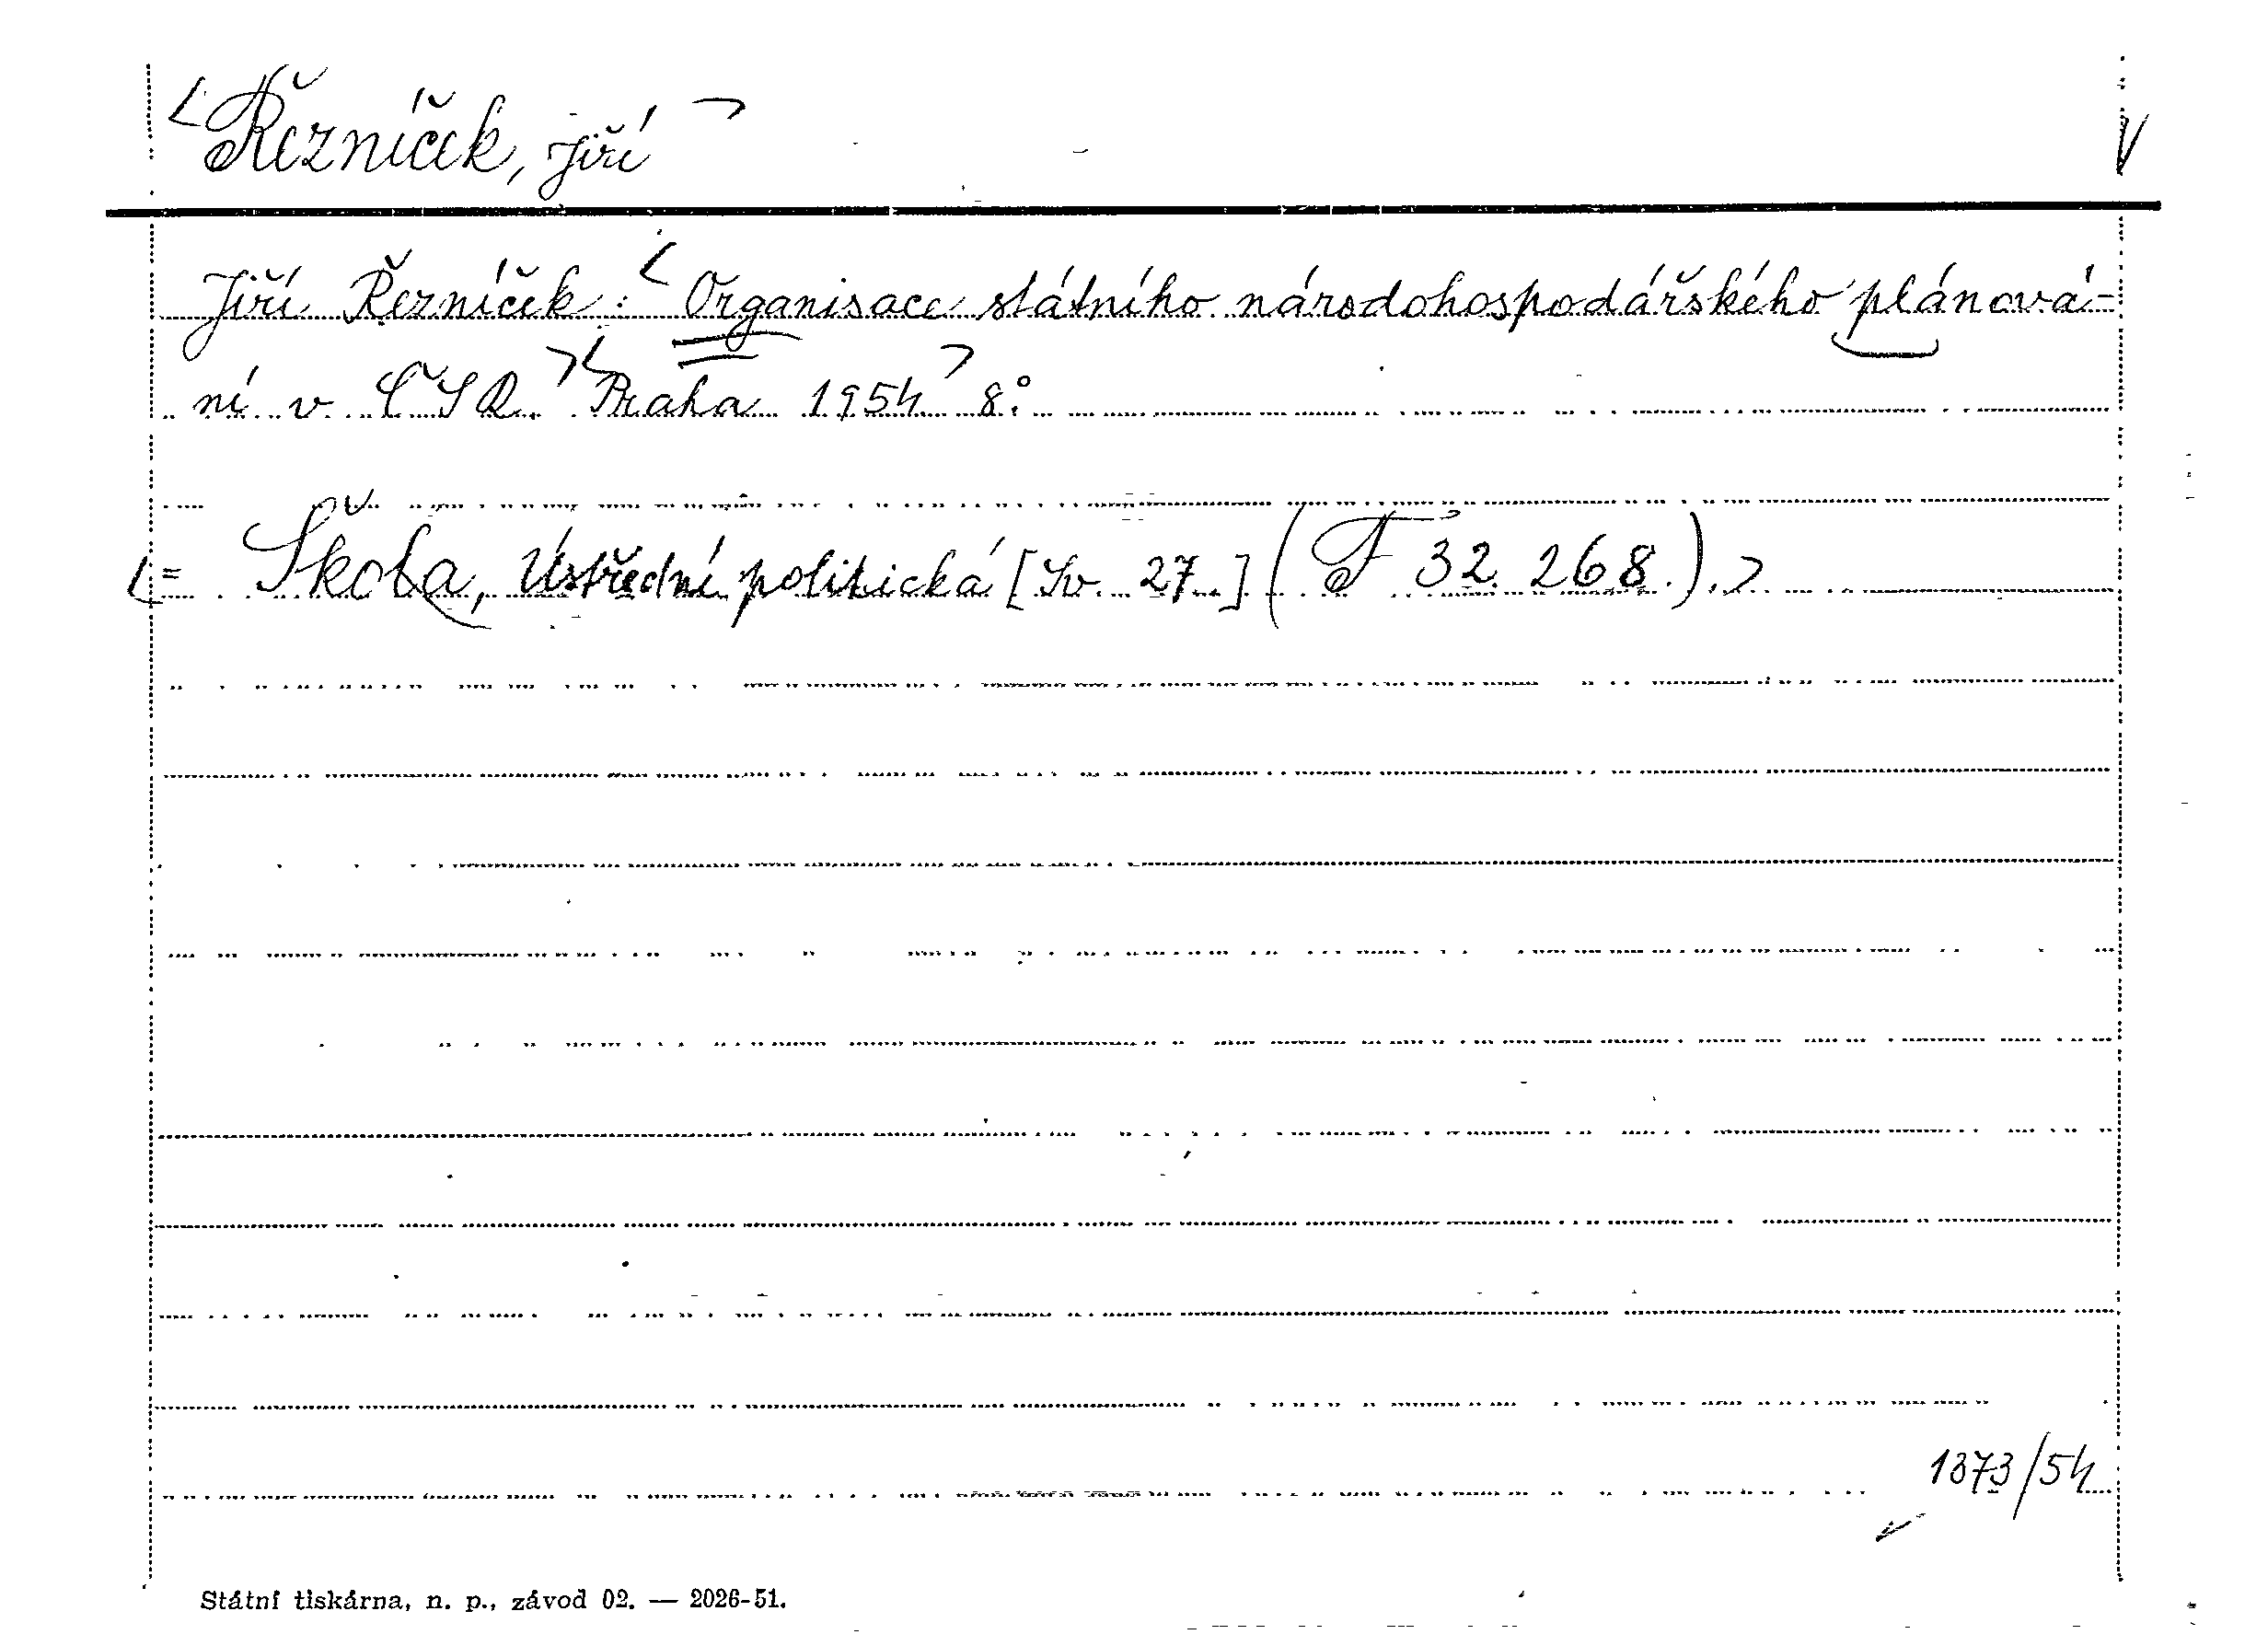 Řezníček, Jiří
Jiří Řezníček: Organisace státního národohospodářského plánová-
ní v ČSR. Praha 1954 8°
= Škola, Ústřední politická [Sv. 27.] (F 32.268.).
1373/54
Státní tiskárna, n. p., závod 02. — 2026-51.